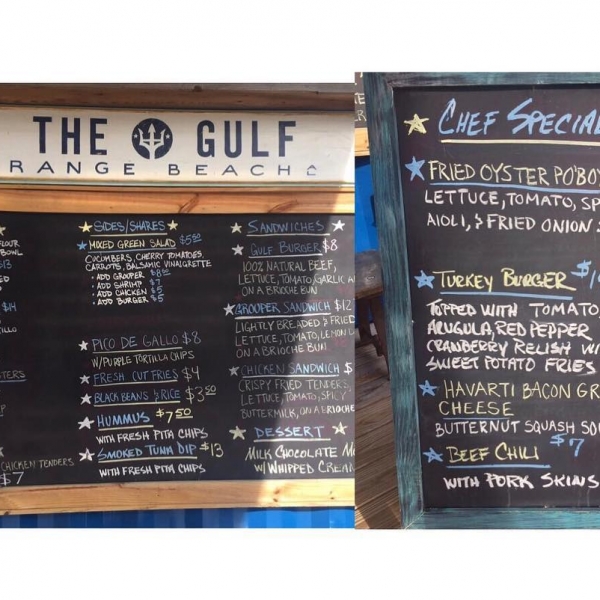 THE GULF
RANGE BEACH
FLOUR
BOWL
$13
$14
$7
CHICKEN TENDERS
SIDES/SHARES
MIXED GREEN SALAD $5.50
CUCUMBERS, CHERRY TOMATOES,
CARROTS, BALSAMIC VINAIGRETTE
• ADD GROUPER $8
• ADD SHRIMP $7
• ADD CHICKEN $5
• ADD BURGER $5
PICO DE GALLO $8
W/PURPLE TORTILLA CHIPS
FRESH CUT FRIES $4
BLACK BEANS & RICE $3.50
HUMMUS $7.50
WITH FRESH PITA CHIPS
SMOKED TUNA DIP $13
WITH FRESH PITA CHIPS
SANDWICHES
GULF BURGER $8
100% NATURAL BEEF,
LETTUCE, TOMATO, GARLIC A
ON A BRIOCHE BUN
GROUPER SANDWICH $12
LIGHTLY BREADED & FRIED
LETTUCE, TOMATO, LEMON
ON A BRIOCHE BUN
CHICKEN SANDWICH $
CRISPY FRIED TENDERS,
LETTUCE, TOMATO, SPICY
BUTTERMILK, ON A BRIOCHE
DESSERT
MILK CHOCOLATE MO
W/ WHIPPED CREAM
CHEF SPECIAL
FRIED OYSTER PO'BOY
LETTUCE, TOMATO, SP
AIOLI, & FRIED ONION S
TURKEY BURGER $1
TOPPED WITH TOMATO,
ARUGULA, RED PEPPER
CRANBERRY RELISH W/
SWEET POTATO FRIES
HAVARTI BACON GR
CHEESE
BUTTERNUT SQUASH SOU
BEEF CHILI $7
WITH PORK SKINS